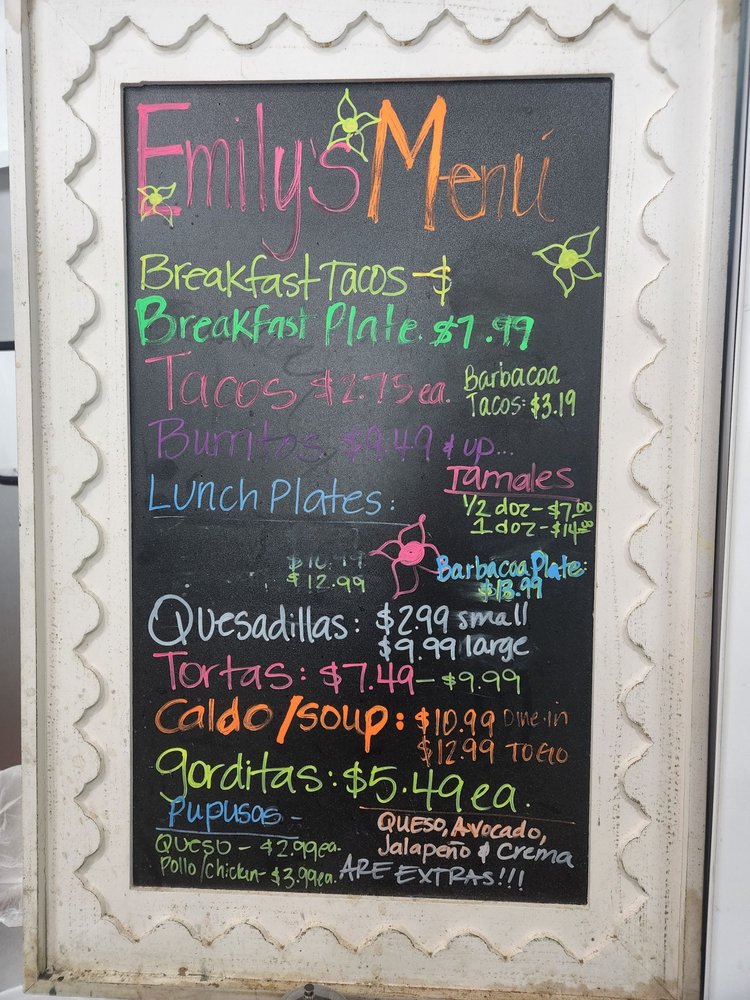 Emily's Menú
Breakfast Tacos - $
Breakfast Plate. $7.99
Tacos $2.75 ea.
Barbacoa
Tacos: $3.19
Burritos $9.49 & up...
Lunch Plates:
Tamales
1/2 doz - $7.00
1 doz - $14.00
$12.99
Barbacoa Plate:
$13.99
Quesadillas: $2.99 small
$9.99 large
Tortas: $7.49 - $9.99
Caldo/Soup: $10.99 Dine-in
$12.99 TO GO
gorditas: $5.49 ea.
Pupusas -
Queso - $2.99 ea.
Pollo/Chicken - $3.99 ea.
QUESO, Avocado,
Jalapeño & Crema
ARE EXTRAS!!!